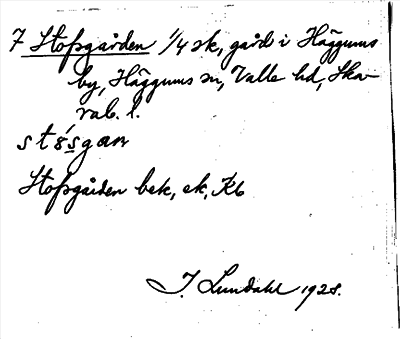 7 Stofsgården 1/4 sk, gård i Häggums
by, Häggums sn, Valle hd, Ska-
rab. l.
stɷ́sgan
Stofsgården bek, ek, Kb
J. Lundahl 1928.